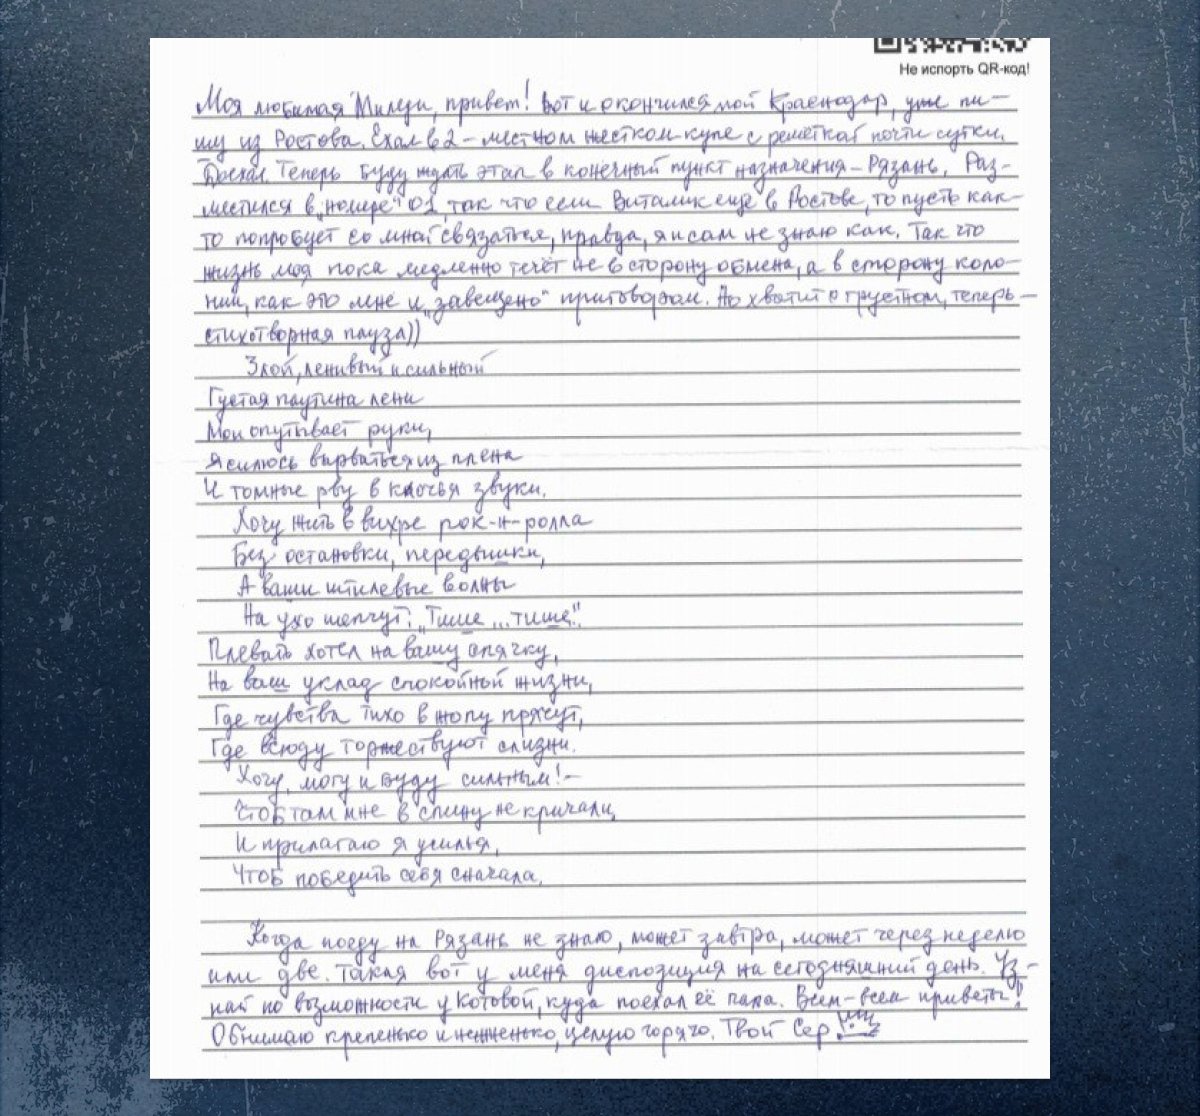 Не испорть QR-код!
Моя любимая Милуш, привет! Вот и окончился мой Краснодар, уже пи-
шу из Ростова. Ехал в 2-местном жестком купе с решёткой почти сутки.
Доехал. Теперь буду ждать этап в конечный пункт назначения – Рязань. Раз-
местился в „номере" 01, так что если Виталик ещё в Ростове, то пусть как-
то попробует со мной связаться, правда, я и сам не знаю как. Так что
жизнь моя пока медленно течёт не в сторону обмена, а в сторону коло-
нии, как это мне и „завещано" приговором. Но хватит о грустном, теперь –
стихотворная пауза))
Злой, ленивый и сильный
Густая паутина лени
Мои опутывает руки,
Я силюсь вырваться из плена
И томные рву в клочья звуки.
Хочу жить в вихре рок-н-ролла
Без остановки, передышки,
А ваши штилевые волны
На ухо шепчут: „Тише... тише".
Плевать хотел на вашу спячку,
На ваш уклад спокойной жизни,
Где чувства тихо в жопу прячут,
Где всюду торжествуют слизни.
Хочу, могу и буду сильным! –
Чтоб там мне в спину не кричали,
И прилагаю я усилья,
Чтоб победить себя сначала.
Когда поеду на Рязань не знаю, может завтра, может через неделю
или две. Такая вот у меня диспозиция на сегодняшний день. Уз-
най по возможности у Котовой, куда поехал её папа. Всем-всем приветы!
Обнимаю крепенько и неженько, целую горячо. Твой Сер